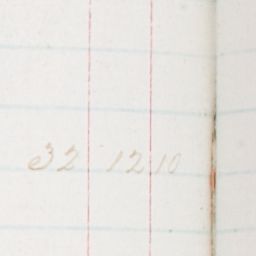 32 12 10